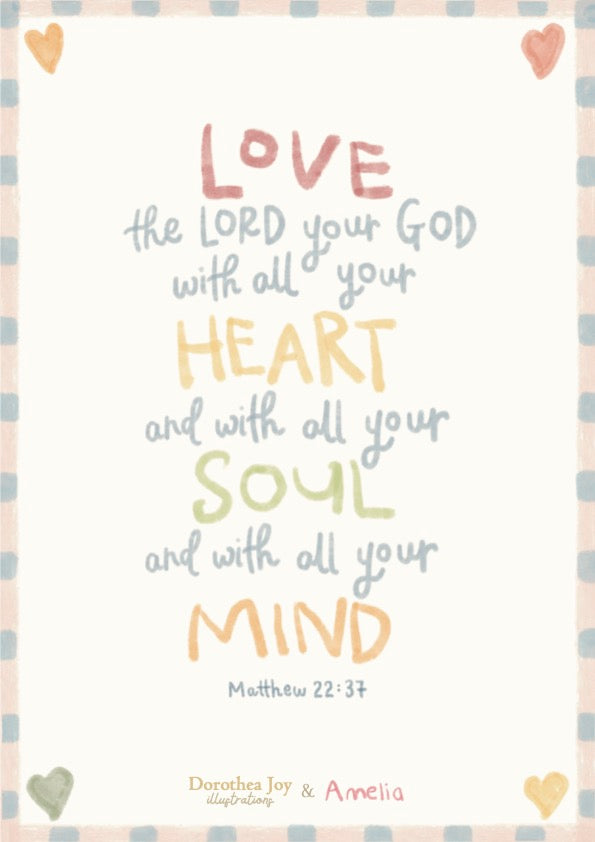 LOVE
the LORD your GOD
with all your
HEART
and with all your
SOUL
and with all your
MIND
Matthew 22:37
Dorothea Joy & Amelia
illustrations